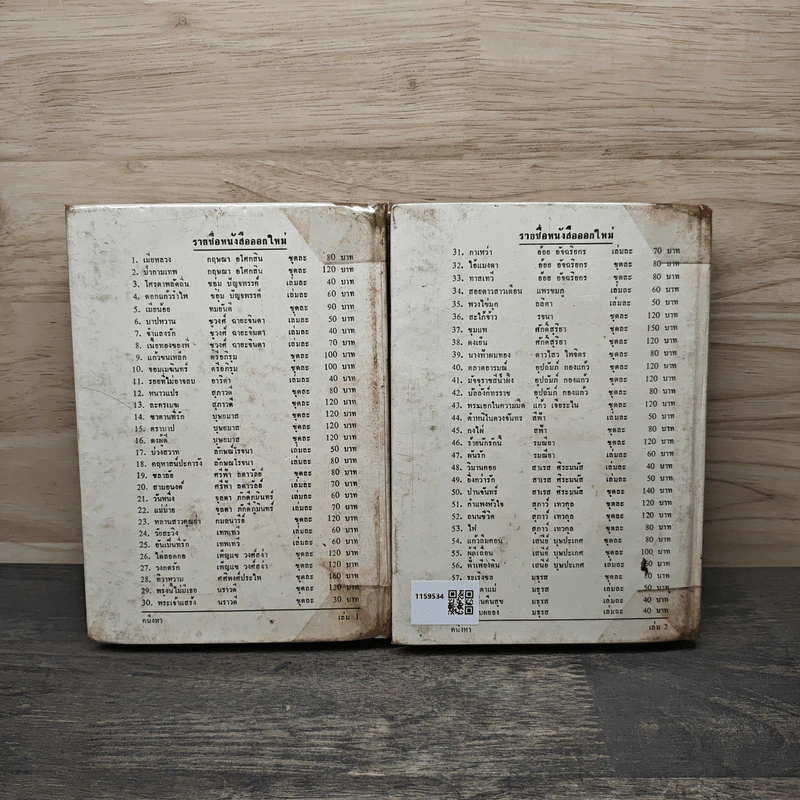 รายชื่อหนังสือออกใหม่
1. เมียหลวง กฤษณา อโศกสิน ชุดละ 80 บาท
2. น้ำกามเทพ กฤษณา อโศกสิน ชุดละ 120 บาท
3. ชอุ่ม ปัญจพรรค์ เล่มละ 40 บาท
4. ดอกแก้วรำไพ ชอุ่ม ปัญจพรรค์ เล่มละ 60 บาท
5. เมียน้อย ทมยันตี ชุดละ 90 บาท
6. บาปหวาน ชูวงศ์ ฉายะจินดา เล่มละ 50 บาท
7. จำแลงรัก ชูวงศ์ ฉายะจินดา เล่มละ 40 บาท
8. เนื้อทองของพี่ ชูวงศ์ ฉายะจินดา เล่มละ 70 บาท
9. แก้วขนเหล็ก ตรีอภิรุม ชุดละ 100 บาท
10. จอมเมฆินทร์ ตรีอภิรุม ชุดละ 100 บาท
11. รอยที่ไม่อาจลบ อาริตา เล่มละ 40 บาท
12. หนาวแปร สุภาวดี ชุดละ 80 บาท
13. ละครเมฆ สุภาวดี ชุดละ 120 บาท
14. ซาตานที่รัก บุษยมาส ชุดละ 120 บาท
15. ตราบาป บุษยมาส ชุดละ 120 บาท
16. ดงผู้ดี บุษยมาส ชุดละ 120 บาท
17. บ่วงสวาท ลักษณโรจนา เล่มละ 50 บาท
18. คฤหาสน์ปะการัง ลักษณโรจนา เล่มละ 80 บาท
19. ชลาลัย ศรีฟ้า ลดาวัลย์ ชุดละ 80 บาท
20. สามอนงค์ ศรีฟ้า ลดาวัลย์ เล่มละ 70 บาท
21. วันหนึ่ง จุลดา ภักดีภูมินทร์ เล่มละ 60 บาท
22. แม่ม่าย จุลดา ภักดีภูมินทร์ เล่มละ 70 บาท
23. หลานสาวคุณย่า กมลนารีย์ ชุดละ 120 บาท
24. วัยสะวิง เทพเทวี เล่มละ 60 บาท
25. อันเป็นที่รัก เทพเทวี เล่มละ 60 บาท
26. ไผ่ลอดกอ เพ็ญแข วงศ์สง่า ชุดละ 120 บาท
27. วงกตรัก เพ็ญแข วงศ์สง่า ชุดละ 120 บาท
28. ทิวาหวาม ศศิพงศ์ประไพ ชุดละ 160 บาท
29. พรุ่งนี้ไม่มีเธอ นราวดี ชุดละ 120 บาท
30. พระเจ้าเสรง นราวดี ชุดละ 30 บาท
คนึงหา เล่ม 1
รายชื่อหนังสือออกใหม่
31. กาเหว่า อ้อย อัจฉริยกร เล่มละ 70 บาท
32. ไอ้แมงดา อ้อย อัจฉริยกร ชุดละ 80 บาท
33. ทาสเทวี อ้อย อัจฉริยกร ชุดละ 80 บาท
34. สอยดาวสาวเดือน เล่มละ 60 บาท
35. พวงไข่มุก ลลิตา เล่มละ 50 บาท
36. สะใภ้จ้าว รจนา ชุดละ 120 บาท
37. ขุมแพ ศักดิ์สุริยา ชุดละ 150 บาท
38. ดงเย็น ศักดิ์สุริยา ชุดละ 120 บาท
39. นางห้ามทอง ดาวไสว ไพจิตร ชุดละ 80 บาท
40. ตลาดอารมณ์ อุปถัมภ์ กองแก้ว ชุดละ 120 บาท
41. มัจจุราชสีน้ำผึ้ง อุปถัมภ์ กองแก้ว ชุดละ 120 บาท
42. บัลลังก์ทรราช อุปถัมภ์ กองแก้ว ชุดละ 80 บาท
43. พระเอกในความมืด แก้ว เจียระไน ชุดละ 120 บาท
44. ตำหนิในดวงจันทร สีฟ้า เล่มละ 50 บาท
45. กงไผ่ สีฟ้า ชุดละ 80 บาท
46. ร้ายนักรักนี้ รมณียา ชุดละ 120 บาท
47. ผันรัก รมณียา เล่มละ 60 บาท
48. วิมานคอย สาเรส ศิระมนัส เล่มละ 40 บาท
49. ยิ่งกว่ารัก สาเรส ศิระมนัส เล่มละ 50 บาท
50. ปานจันทร์ สาเรส ศิระมนัส ชุดละ 140 บาท
51. กำแพงหัวใจ สุภาว์ เทวกุล ชุดละ 120 บาท
52. ถนนชีวิต สุภาว์ เทวกุล ชุดละ 120 บาท
53. ไฟ สุภาว์ เทวกุล ชุดละ 80 บาท
54. แก้วลืมคอน เสนีย์ บุษปะเกศ ชุดละ 80 บาท
55. ผู้ดีเถื่อน เสนีย์ บุษปะเกศ ชุดละ 100 บาท
56. ฟ้าเพียงดิน เสนีย์ บุษปะเกศ ชุดละ บาท
57. ระเริงชล มธุรส ชุดละ 80 บาท
ตาแม่ มธุรส เล่มละ 50 บาท
คืนสุข มธุรส เล่มละ 40 บาท
มธุรส เล่มละ 40 บาท
คนึงหา เล่ม 2
1159534